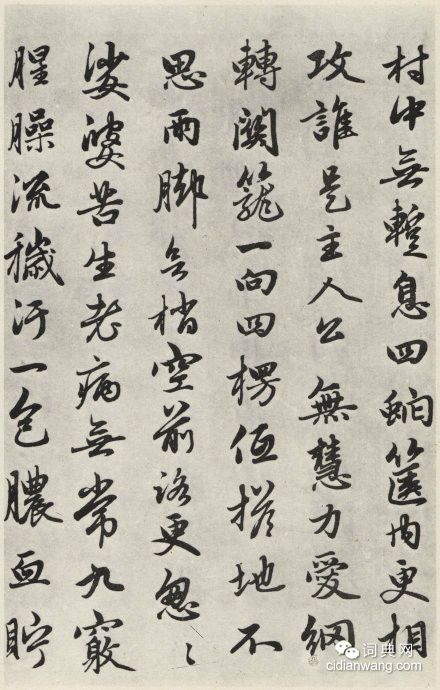 村中無暫息四虵篋内更相
攻誰是主人公無慧力愛網
轉關籠一向四楞低搭地不
思兩脚無梢空前路更怱〻
娑婆苦生老病無常九竅
腥臊流穢汙一包膿血貯
词典网
cidianwang.com